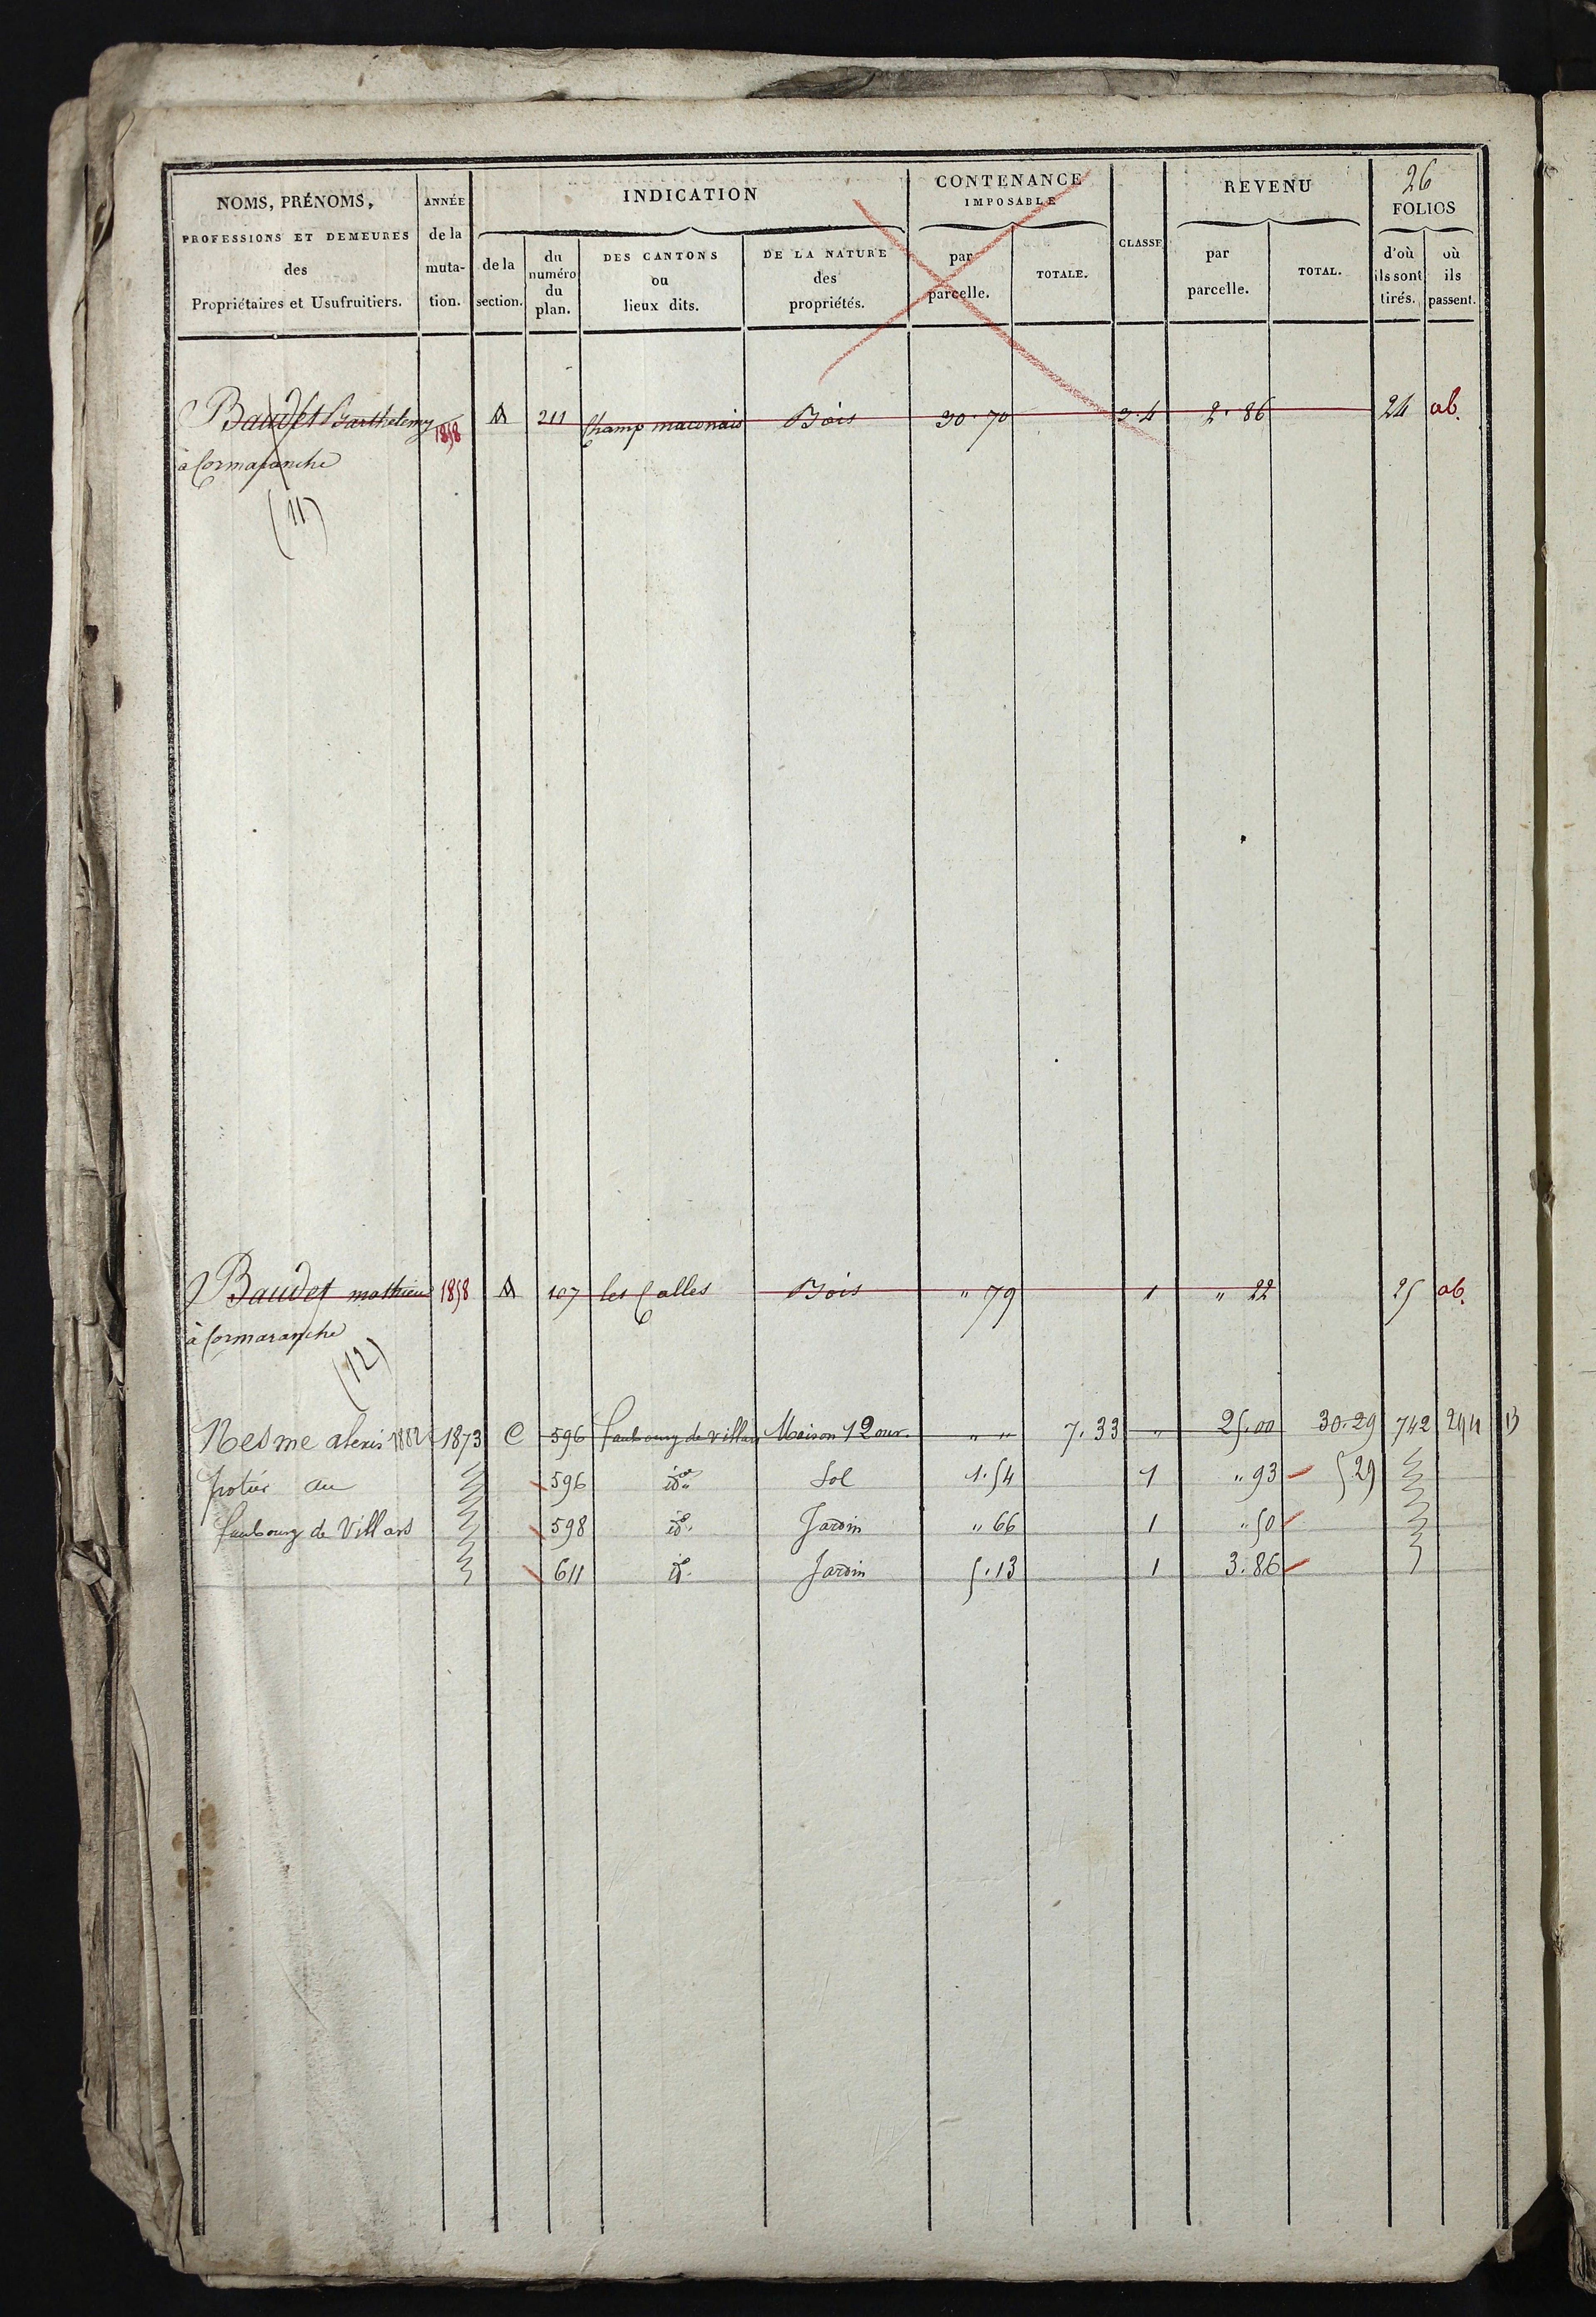 26
NOMS, PRÉNOMS, ANNÉE INDICATION CONTENANCE IMPOSABLE CLASSE REVENU FOLIOS
PROFESSIONS ET DEMEURES des Propriétaires et Usufruitiers. de la mutation. de la section. du numéro du plan. DES CANTONS ou lieux dits. DE LA NATURE des propriétés. par parcelle. TOTALE. par parcelle. TOTAL. d'où ils sont tirés. où ils passent.
Baudet Barthelemy 1858 A 211 Champ maconais Bois 30.70 3.4 2.86 24 ab.
à Cormaranche
(11)
Baudet mathieu 1858 A 107 les Calles Bois " 79 1 " 22 25 ab.
à Cormaranche
(12)
Nesme alexis 1882 1873 C 596 faubourg de villars Maison 12 our " " 7.33 " 25.00 30.29 742
potier au 596 id. Sol 1.54 1 " 93 5 29
faubourg de Villars 598 id. Jardin " 66 1 " 50
611 id. Jardin 5.13 1 3.86